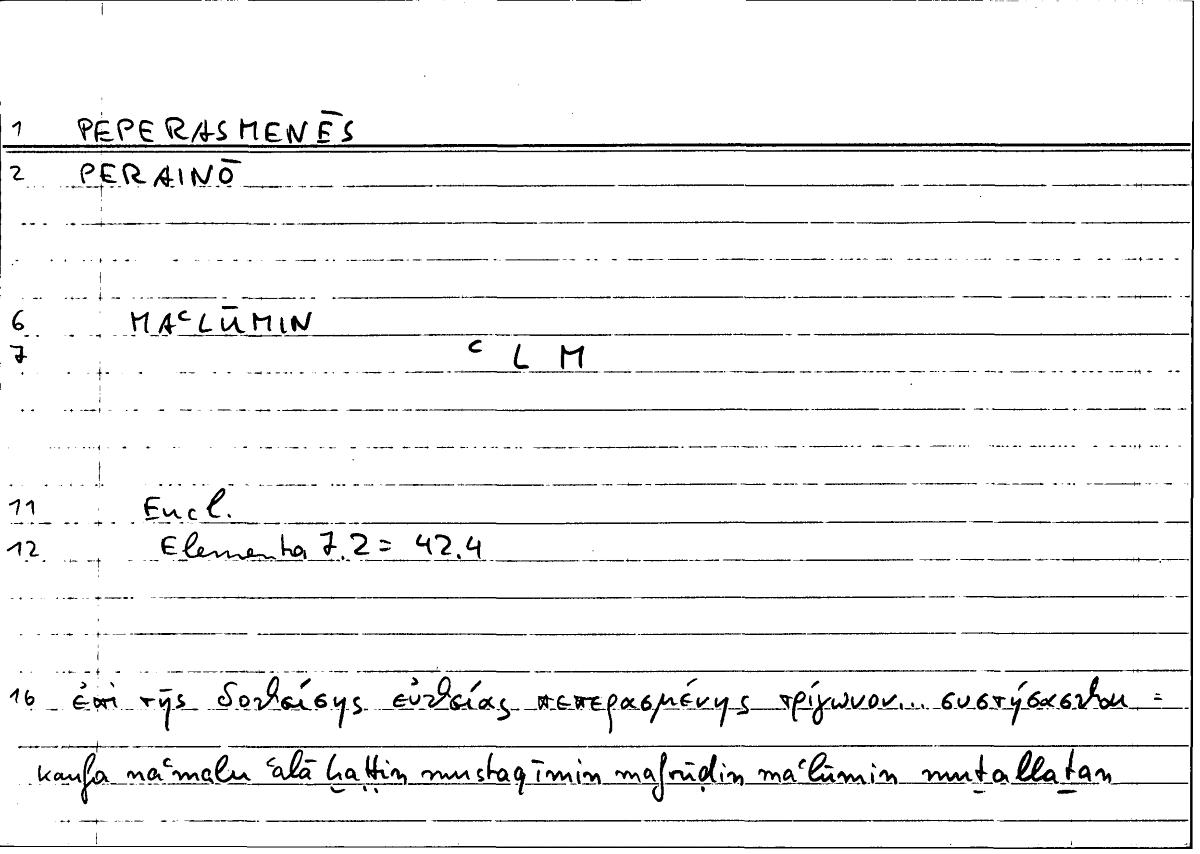 1 PEPERASMENĒS
2 PERAINŌ
6 MAʿLŪMIN
7 ʿ L M
11 Eucl.
12 Elementa 7.2 = 42.4
16 ἐπὶ τῆς δοθείσης εὐθείας πεπερασμένης τρίγωνον... συστήσασθαι =
kayfa naʿmalu ʿalā ḫaṭṭin mustaqīmin mafrūḍin maʿlūmin muṯallaṯan